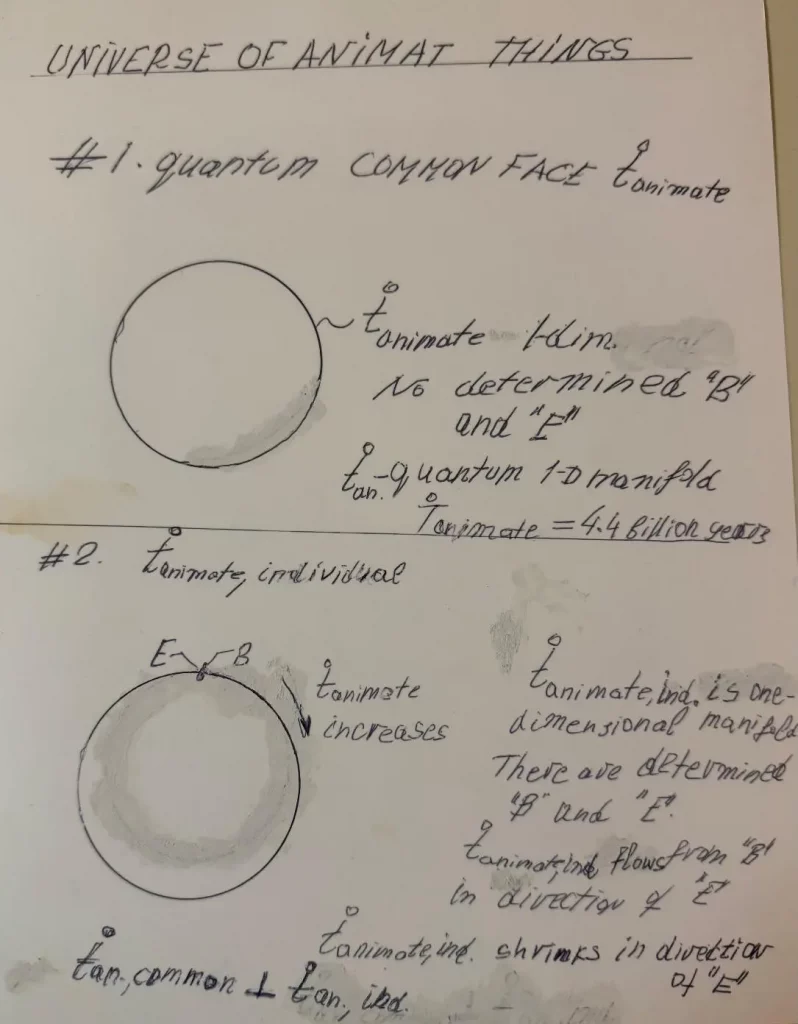 UNIVERSE OF ANIMAT THINGS
#1. quantum COMMON FACE t̊animate
t̊animate 1-dim.
No determined "B"
and "E"
t̊an.-quantum 1-D manifold
T̊animate = 4.4 Billion years
#2. t̊animate, individual
E B
t̊animate
increases
t̊animate, ind. is one-
dimensional manifold
There are determined
"B" and "E".
t̊animate, ind. flows from "B"
in direction of "E"
t̊animate, ind. shrinks in divection
of "E"
t̊an., common ⊥ t̊an., ind.